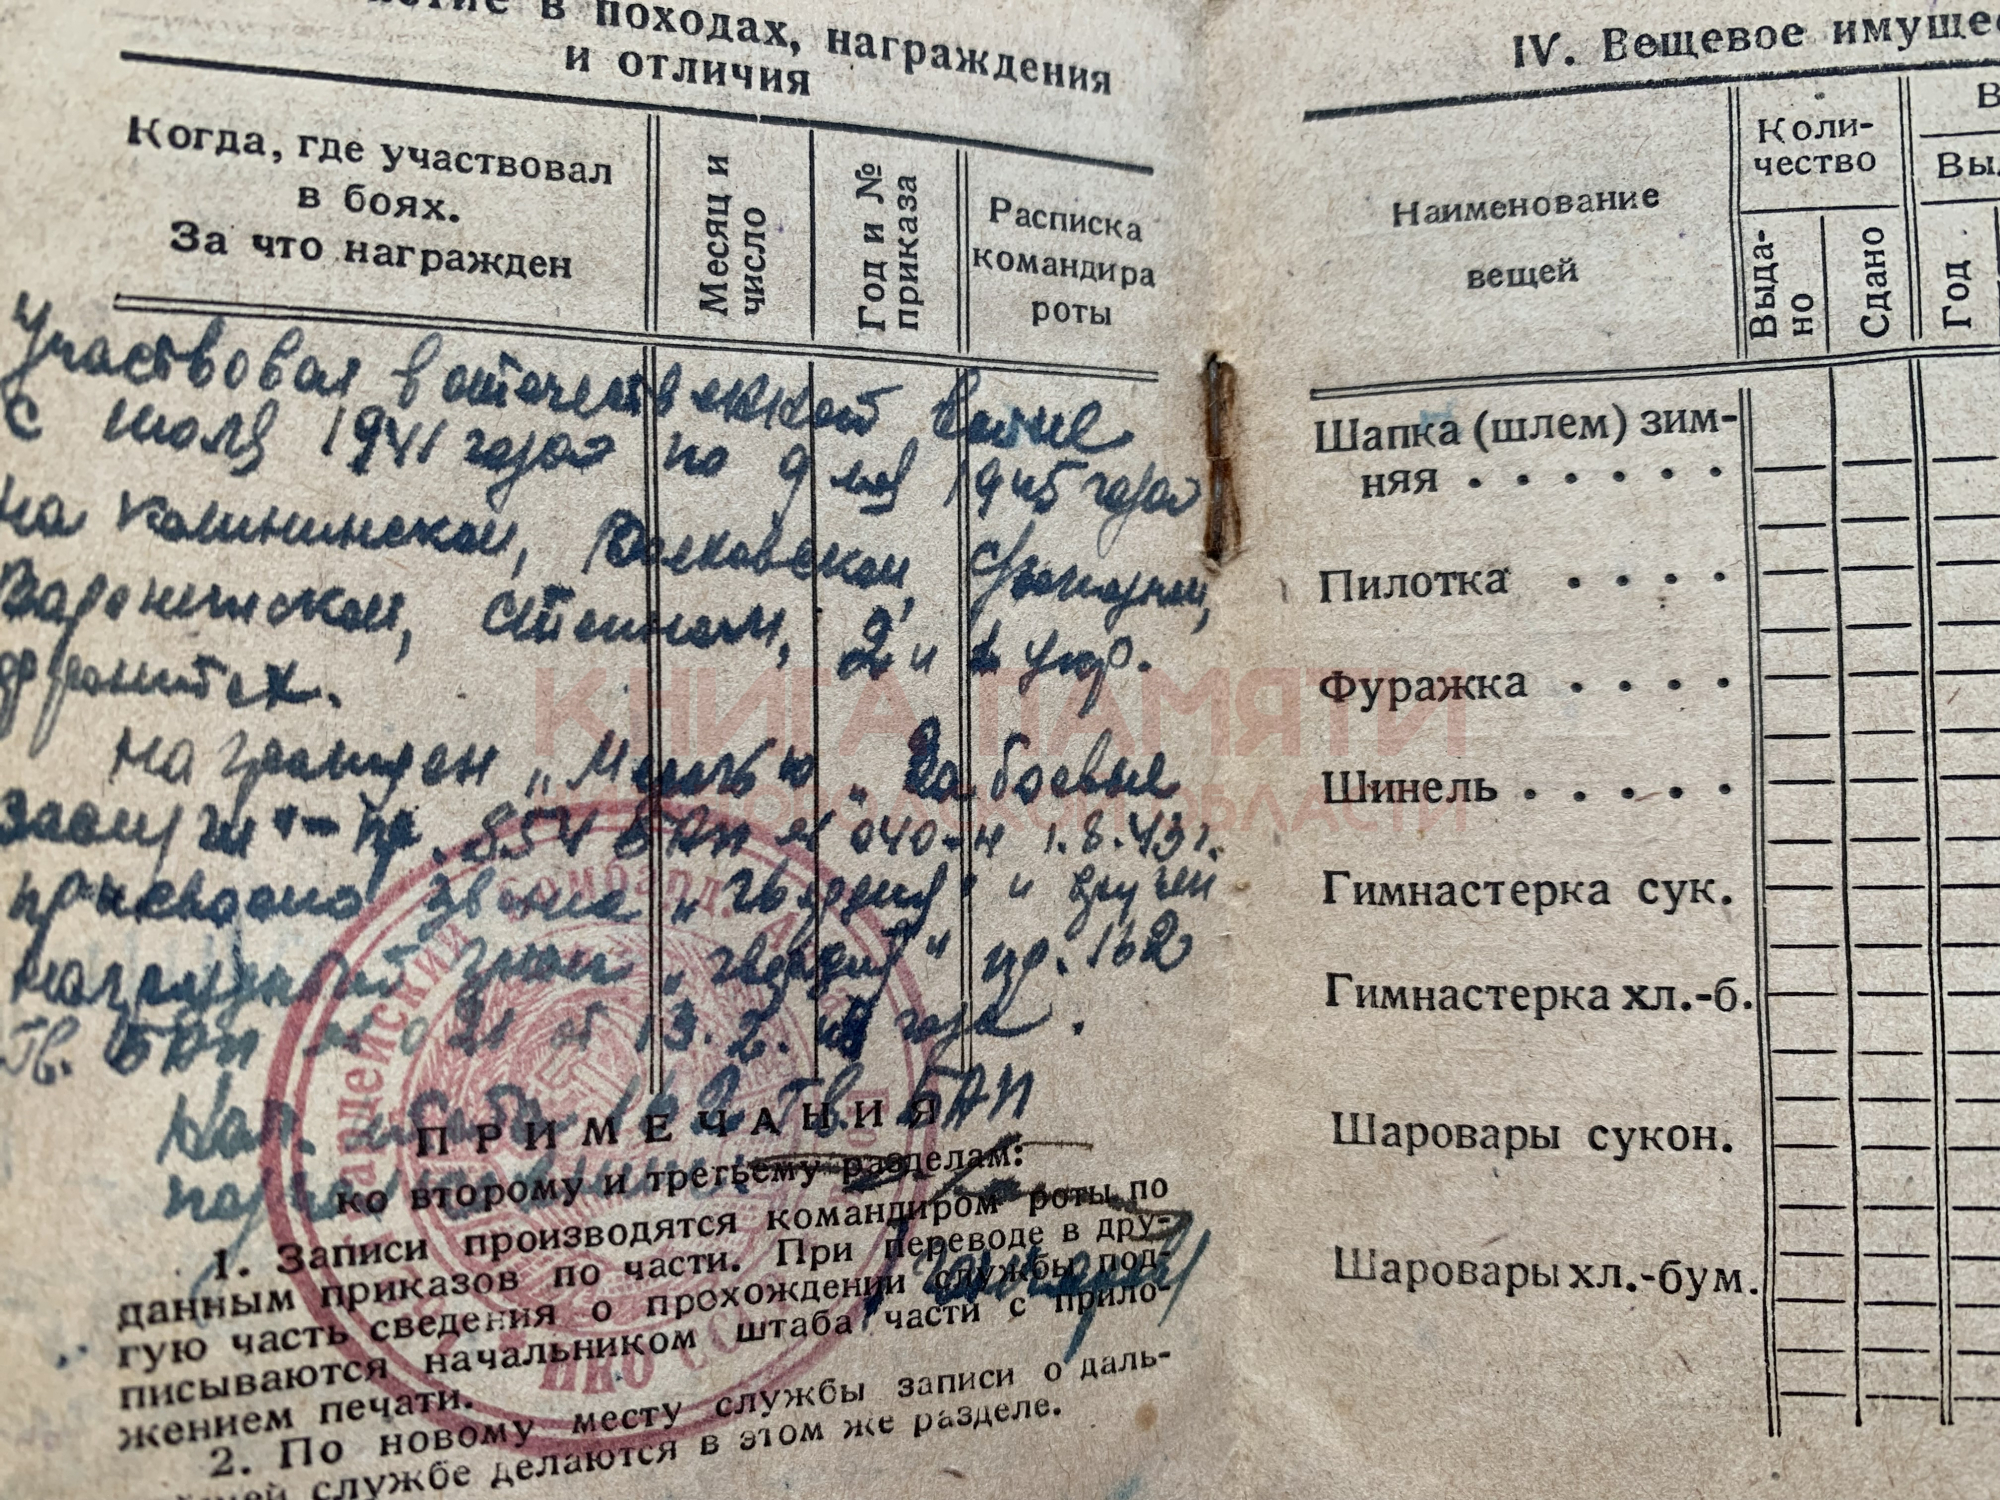 в походах, награждения
и отличия
Когда, где участвовал
в боях.
За что награжден
Месяц и
число
Год и №
приказа
Расписка
командира
роты
Участвовал в отечественной войне
с июля 1941 года по 9 мая 1945 года
на Калининском,
Воронежском, Степном, 2 и 1 укр.
фронтах.
Награжден „Медалью „За боевые
заслуги" – пр. 854 БАП № 040-н 1.8.43 г.
присвоено звание „гвардия" и вручен
нагрудный знак „гвардия" пр. 162
Гв. БАП № 021 от 13.2. года.
Нач. штаба 162 Гв. БАП
ПРИМЕЧАНИЯ
ко второму и третьему разделам:
1. Записи производятся командиром роты по
данным приказов по части. При переводе в дру-
гую часть сведения о прохождении службы под-
писываются начальником штаба части с прило-
жением печати.
2. По новому месту службы записи о даль-
службе делаются в этом же разделе.
КНИГА ПАМЯТИ
ОБЛАСТИ
НКО
IV. Вещевое
Наименование
вещей
Коли-
чество
Выда-
но
Сдано
Год
Шапка (шлем) зим-
няя . . . . . .
Пилотка . . . .
Фуражка . . . .
Шинель . . . . .
Гимнастерка сук.
Гимнастерка хл.-б.
Шаровары сукон.
Шаровары хл.-бум.